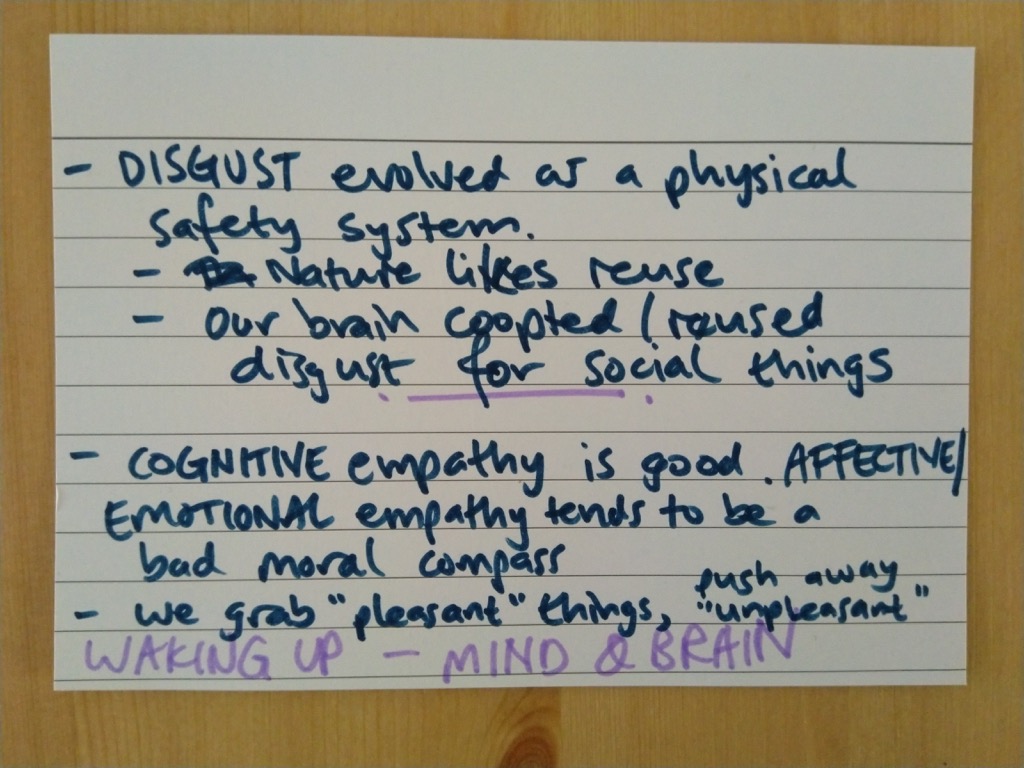 - DISGUST evolved as a physical
safety system.
- Nature likes reuse
- Our brain coopted / reused
disgust for social things
- COGNITIVE empathy is good. AFFECTIVE/
EMOTIONAL empathy tends to be a
bad moral compass
push away
- we grab "pleasant" things, "unpleasant"
WAKING UP - MIND & BRAIN